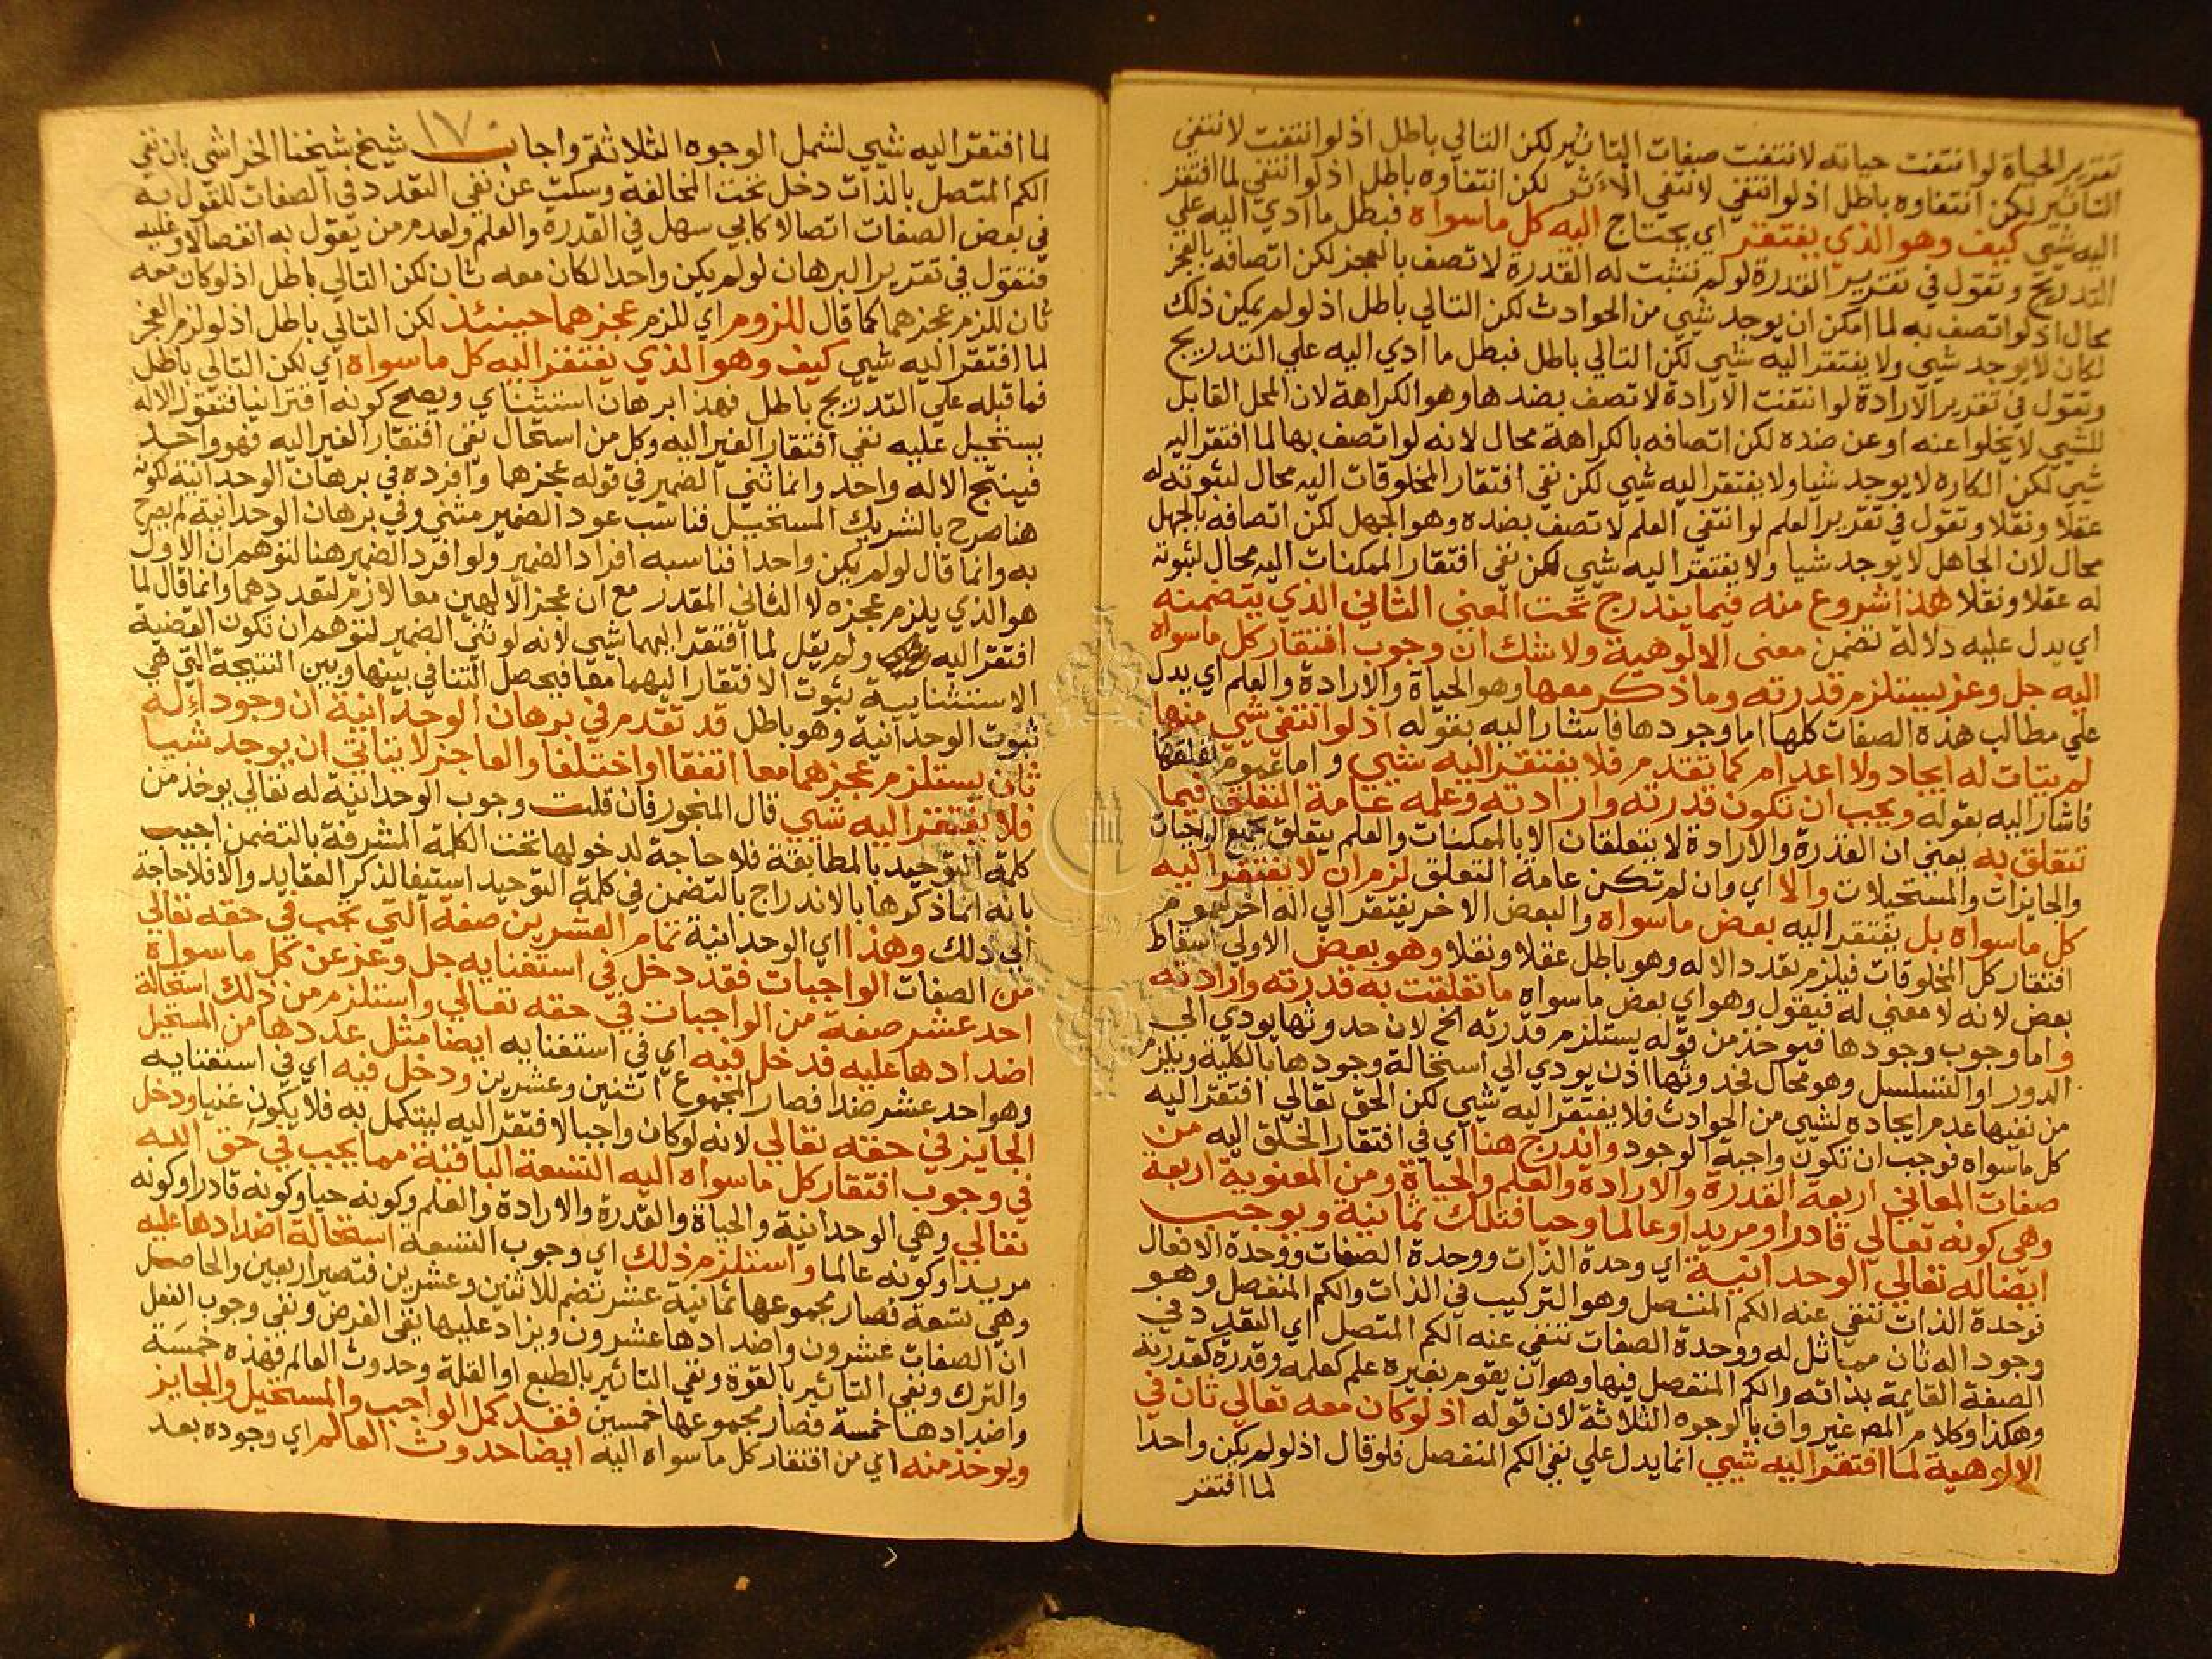 تقرير الحياة لو انتفت حياته لانتفت صفات التاثير لكن التالي باطل اذ لو انتفت لانتفي
التاثير لكن انتفاوه باطل اذ لو انتفي لانتفي الاثر لكن انتفاوه باطل اذ لو انتفي لما افتقر
اليه شي كيف وهو الذي يفتقر اي يحتاج اليه كل ما سواه فبطل ما ادي اليه علي
التدريج وتقول في تقرير القدرة لو لم تثبت له القدرة لاتصف بالعجز لكن اتصافه بالعجز
محال اذ لو اتصف به لما امكن ان يوجد شي من الحوادث لكن التالي باطل اذ لو لم يمكن ذلك
لكان لا يوجد شي ولا يفتقر اليه شي لكن التالي باطل فبطل ما ادي اليه علي التدريج
وتقول في تقرير الارادة لو انتفت الارادة لاتصف بضدها وهو الكراهة لان المحل القابل
للشي لا يخلوا عنه او عن ضده لكن اتصافه بالكراهة محال لانه لو اتصف بها لما افتقر اليه
شي لكن الكاره لا يوجد شيا ولا يفتقر اليه شي لكن نفي افتقار المخلوقات اليه محال لثبوته له
عقلا ونقلا وتقول في تقرير العلم لو انتفي العلم لاتصف بضده وهو الجهل لكن اتصافه بالجهل
محال لان الجاهل لا يوجد شيا ولا يفتقر اليه شي لكن نفي افتقار الممكنات اليه محال لثبوته
له عقلا ونقلا هذا شروع منه فيما يندرج تحت المعني الثاني الذي يتضمنه
اي يدل عليه دلالة تضمن معني الالوهية ولا شك ان وجوب افتقار كل ما سواه
اليه جل وعز يستلزم قدرته وما ذكر معها وهو الحياة والارادة والعلم اي يدل
علي مطالب هذه الصفات كلها اما وجودها فاشار اليه بقوله اذ لو انتفي شي منها
لم يتات له ايجاد ولا اعدام كما تقدم فلا يفتقر اليه شي واما عموم تعلقها
فاشار اليه بقوله ويجب ان تكون قدرته وارادته وعلمه عامة التعلق فيما
تتعلق به يعني ان القدرة والارادة لا يتعلقان الا بالممكنات والعلم يتعلق بجميع الواجبات
والجايزات والمستحيلات والا اي وان لم تكن عامة التعلق لزم ان لا يفتقر اليه
كل ما سواه بل يفتقر اليه بعض ما سواه والبعض الاخر يفتقر الي اله اخر لعموم
افتقار كل المخلوقات فيلزم تعدد الاله وهو باطل عقلا ونقلا وهو بعض الاولي اسقاط
بعض لانه لا معني له فيقول وهو اي بعض ما سواه ما تعلقت به قدرته وارادته
واما وجوب وجودها فيوخذ من قوله يستلزم قدرته الخ لان حدوثها يودي الي
الدور او التسلسل وهو محال فحدوثها اذن يودي الي استحالة وجودها بالكلية ويلزم
من نفيها عدم ايجاده لشي من الحوادث فلا يفتقر اليه شي لكن الحق تعالي افتقر اليه
كل ما سواه فوجب ان تكون واجبة الوجود واندرج هنا اي في افتقار الخلق اليه من
صفات المعاني اربعة القدرة والارادة والعلم والحياة ومن المعنوية اربعة
وهي كونه تعالي قادرا ومريدا وعالما وحيا فتلك ثمانية ويوجب
ايضا له تعالي الوحدانية اي وحدة الذات ووحدة الصفات ووحدة الافعال
فوحدة الذات تنفي عنه الكم المتصل وهو التركيب في الذات والكم المنفصل وهو
وجود اله ثان مماثل له ووحدة الصفات تنفي عنه الكم المتصل اي التعدد في
الصفة القايمة بذاته والكم المنفصل فيها وهو ان يقوم بغيره علم كعلمه وقدرة كقدرته
وهكذا وكلام المص غير واف بالوجوه الثلاثة لان قوله اذ لو كان معه تعالي ثان في
الالوهية لما افتقر اليه شي انما يدل علي نفي الكم المنفصل فلو قال اذ لو لم يكن واحدا
لما افتقر
١٧
لما افتقر اليه شي لشمل الوجوه الثلاثة واجاب شيخ شيخنا الخراشي بان نفي
الكم المتصل بالذات دخل تحت المخالفة وسكت عن نفي التعدد في الصفات للقول به
في بعض الصفات اتصالا كابي سهل في القدرة والعلم ولعدم من يقول به انفصالا وعليه
فنقول في تقرير البرهان لو لم يكن واحدا لكان معه ثان لكن التالي باطل اذ لو كان معه
ثان للزم عجزهما كما قال للزوم اي للزم عجزهما حينئذ لكن التالي باطل اذ لو لزم العجز
لما افتقر اليه شي كيف وهو الذي يفتقر اليه كل ما سواه اي لكن التالي باطل
فما قبله علي التدريج باطل فهذا برهان استثناي ويصح كونه اقترانيا فتقول الاله
يستحيل عليه نفي افتقار الغير اليه وكل من استحال نفي افتقار الغير اليه فهو واحد
فينتج الاله واحد وانما ثني الضمير في قوله عجزهما وافرده في برهان الوحدانية لكونه
هنا صرح بالشريك المستحيل فناسب عود الضمير مثني وفي برهان الوحدانية لم يصرح
به وانما قال لو لم يكن واحدا فناسبه افراد الضمير ولو افرد الضمير هنا لتوهم ان الاول
هو الذي يلزم عجزه لا الثاني المقدر مع ان عجز الالهين معا لازم لتعددهما وانما قال لما
افتقر اليه شي ولم يقل لما افتقر اليهما شي لانه لو ثني الضمير لتوهم ان تكون القضية
الاستثنايية ثبوت الافتقار اليهما معا فيحصل التنافي بينها وبين النتيجة التي هي
ثبوت الوحدانية وهو باطل قد تقدم في برهان الوحدانية ان وجود اله
ثان يستلزم عجزهما معا اتفقا او اختلفا والعاجز لا يتاتي ان يوجد شيا
فلا يفتقر اليه شي قال المنجور فان قلت وجوب الوحدانية له تعالي يوخذ من
كلمة التوحيد بالمطابقة فلا حاجة لدخولها تحت الكلمة المشرفة بالتضمن اجيب
بانه انما ذكرها بالاندراج بالتضمن في كلمة التوحيد استيفا لذكر العقايد والا فلا حاجة
الي ذلك وهذا اي الوحدانية تمام العشرين صفة التي يجب في حقه تعالي
من الصفات الواجبات فقد دخل في استغنايه جل وعز عن كل ما سواه
احد عشر صفة من الواجبات في حقه تعالي واستلزم من ذلك استحالة
اضدادها عليه فدخل فيه اي في استغنايه ايضا مثل عددها من المستحيل
وهو احد عشر ضدا فصار المجموع اثنين وعشرين ودخل فيه اي في استغنايه
الجايز في حقه تعالي لانه لو كان واجبا لافتقر اليه ليتكمل به فلا يكون غنيا ودخل
في وجوب افتقار كل ما سواه اليه التسعة الباقية مما يجب في حق الله
تعالي وهي الوحدانية والحياة والقدرة والارادة والعلم وكونه حيا وكونه قادرا وكونه
مريدا وكونه عالما واستلزم ذلك اي وجوب التسعة استحالة اضدادها عليه
وهي تسعة فصار مجموعها ثمانية عشر تضم للاثنين وعشرين فتصير اربعين والحاصل
ان الصفات عشرون واضدادها عشرون ويزاد عليها نفي الغرض ونفي وجوب الفعل
والترك ونفي التاثير بالقوة ونفي التاثير بالطبع او العلة وحدوث العالم فهذه خمسة
واضدادها خمسة فصار مجموعها خمسين فقد كمل الواجب والمستحيل والجايز
ويوخذ منه اي من افتقار كل ما سواه اليه ايضا حدوث العالم اي وجوده بعد